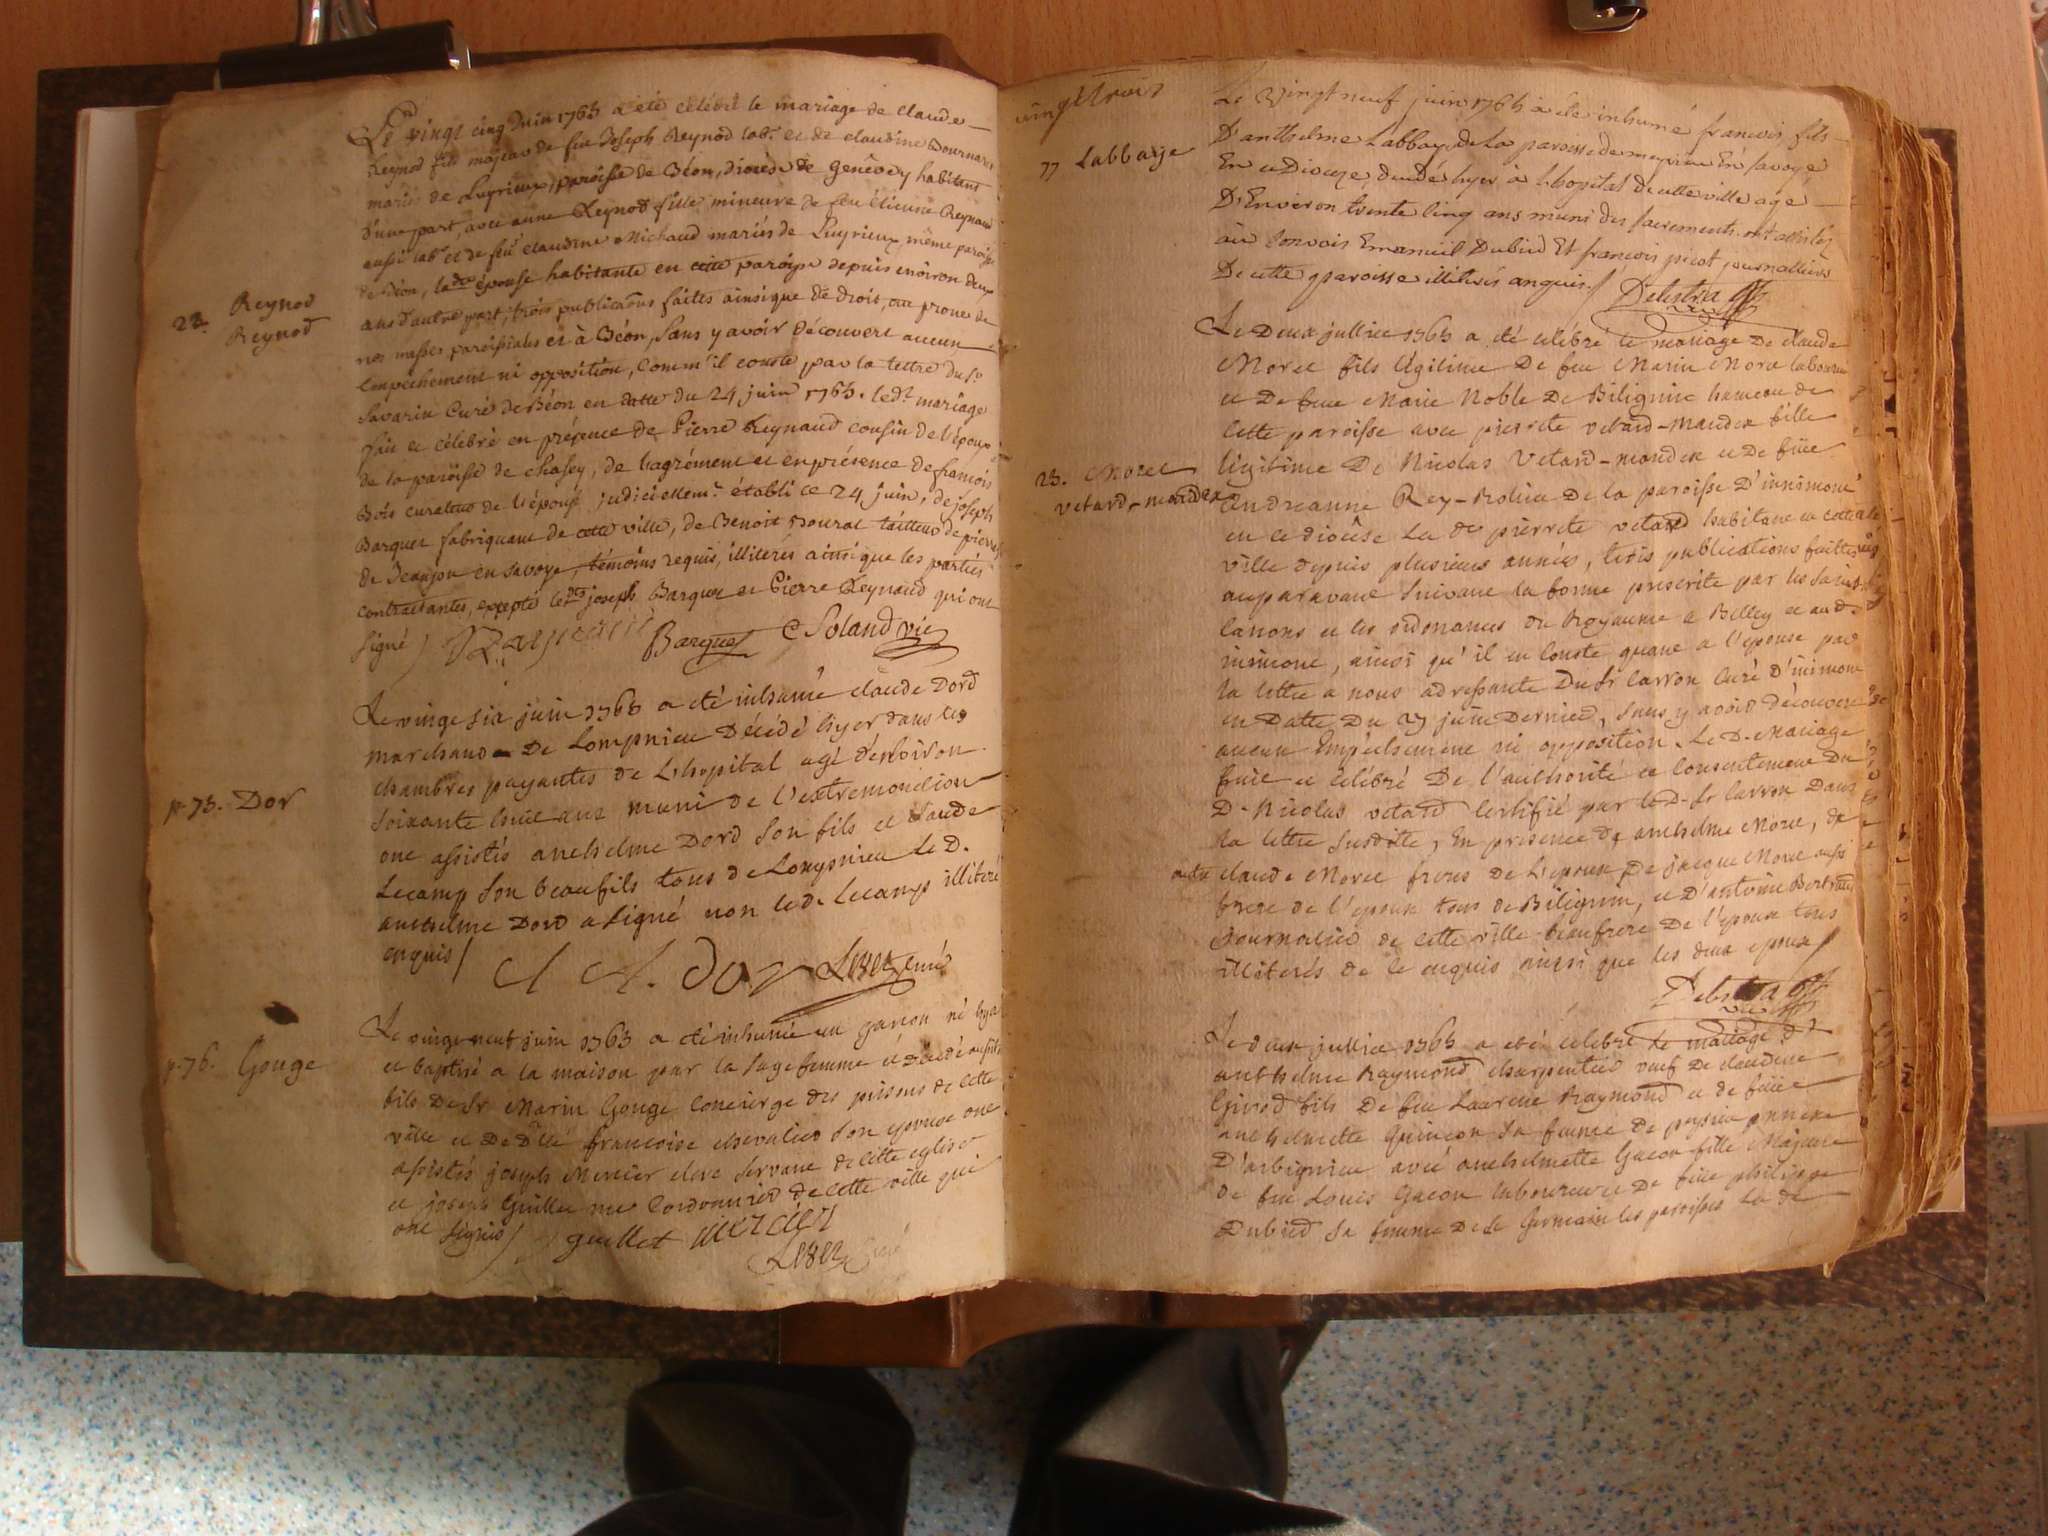 Le vingt cinq Juin 1763 a été célébré le mariage de Claude
Reynod fils majeur de feu Joseph Reynod labr. et de claudine Bournard
mariés de Luyrieux, paroisse de Béon, diocèse de Genêve, y habitans
d'une part, avec anne Reynod fille mineure de feu étienne Reynaud
aussi labr. et de feue claudine Michaud mariés de Luyrieux même paroisse
de Béon, ladte épouse habitante en cette paroisse depuis environ deux
22. Reynod
Reynod
ans d'autre part, trois publicaons faites ainsi que de droit, au prone de
nos messes paroissiales et à Béon, sans y avoir découvert aucun
empechement ni opposition, comm'il conste par la lettre du Sr
Savarin Curé de Béon en datte du 24 juin 1763. ledt. mariage
fait et célébré en présence de Pierre Reynaud cousin de l'époux
de la paroisse de chasey, de l'agrément et en présence de francois
Bois curateur de l'épouse judiciellemt. établi ce 24 juin, de joseph
Barquet fabriquant de cette ville, de Benoit tailleur de pierres
de en Savoye, témoins requis, illiterés ainsi que les parties
contractantes, excepté lesdts joseph Barquet et Pierre Reynaud qui ont
signé /
Barquet C Soland vic
Le vingt six juin 1763 a été inhumé claude Dord
marchand de Lompnieu Décédé hyer dans les
chambres payantes de L'hopital agé d'environ
p. 75. Dor
soixante huit ans muni de l'extremonction
ont assistés anthelme Dord son fils et Claude
Lecamp son beaufils tous de Lompnieu Le D.
anthelme Dord a signé non led. Lecamp illiteré
enquis /
A. Dor curé
Le vingt neuf juin 1763 a été inhumé un garcon né hyer
et baptisé a la maison par la sagefemme et décédé aussitot
p. 76. Gouge
fils de Sr Marin Gouge Concierge des prisons de cette
ville et de Dlle francoise chevalier son epouse ont
assistés joseph Mercier clerc servant de cette eglise
et joseph Guillet me Cordonnier de cette ville qui
ont signés /
guillet mercier
curé
vingt trois
Le vingt neuf juin 1763 a été inhumé francois fils
77 Labbaye
D'anthelme Labbay, de La paroisse de meyrieu En Savoye
En ce Dioceze, decedé hyer à l'hopital de cette ville agé
D'Environ trente Cinq ans muni des sacrements. ont assistés
au Convois Emanuël Dubied Et francois picot journalliers
De cette paroisse illiterés enquis /
Delestra
Le Deux juillet 1763 a été célébré le mariage De claude
Morel fils légitime De feu Marin Morel laboureur
et De feue Marie Noble De Bilignin hameau de
cette paroisse avec pierrete vetard-mandex fille
23. Morel
vetard-mandex
légitime De Nicolas Vetard-mandex et De feüe
andreanne Rey- de la paroisse D'innimont
en ce diocèse La de pierrete vetard habitant en cette
ville depuis plusieurs années, trois publications faittes
auparavant suivant la forme prescrite par les saints
canons et les ordonances du Royaume a Belley et aud.
inimont, ainsi qu'il en Conste quant a l'epouse par
la lettre a nous adressante Du Sr Carron Curé D'inimont
en Datte Du 27 juin Dernier, sans y avoir découvert
aucun Empêchement ni opposition. Le D. Mariage
fait et célébré De l'authorité et Consentement Du
D. Nicolas vetard certifié par led. Sr Carron Dans
la lettre susditte, En presence de anthelme Morel, de
autre claude Morel freres de L'epoux, De jacque Morel aussi
frere de l'epoux tous de Bilignin, et D'antoine Bertrand
journalier de cette ville beaufrere De l'epoux tous
illiterés de ce enquis ainsi que les deux epoux /
Delestra
vic
Le deux juillet 1763 a été célébré le mariage d'
anthelme Raymond charpentier veuf De claudine
Girod fils De feu Laurent Raymond et de feüe
anthelmette Quincon sa femme de peyrieu annexe
D'arbignieu avec anthelmette Gacon fille Majeure
de feu Louis Gacon laboureur et De feüe philippe
Dubied sa femme De St Germain les paroisses La de